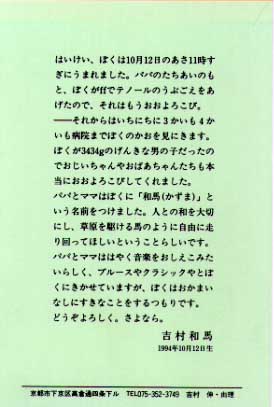 はいけい、ぼくは10月12日のあさ11時す
ぎにうまれました。パパのたちあいのも
と、ぼくがffでテノールのうぶごえをあ
げたので、それはもうおおよろこび。
――それからはいちにちに3かいも4か
いも病院までぼくのかおを見にきます。
ぼくが3434gのげんきな男の子だったの
でおじいちゃんやおばあちゃんたちも本
当におおよろこびしてくれました。
パパとママはぼくに「和馬(かずま)」と
いう名前をつけました。人との和を大切
にし、草原を駆ける馬のように自由に走
り回ってほしいということらしいです。
パパとママははやく音楽をおしえこみた
いらしく、ブルースやクラシックやとぼ
くにきかせていますが、ぼくはおかまい
なしにすきなことをするつもりです。
どうぞよろしく。さよなら。
吉村和馬
1994年10月12日生
京都市下京区高倉通四条下ル TEL075-352-3749 吉村 伸・由理